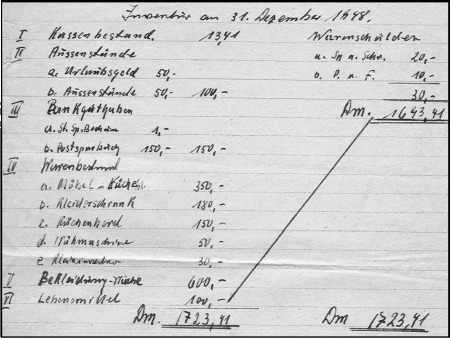 Inventur am 31. Dezember 1948.
I Kassenbestand. 13,41 Warenschulden
II Aussenstände u. Sp. u. Schr. 20,-
a. Urlaubsgeld 50,- o. P. u. F. 10,-
b. Aussenstände 50,- 100,- 30,-
III Bankguthaben Dm. 1693,41
a. St. Sp. Bochum 1,-
b. Postsparbuch 150,- 150,-
IV Warenbestand
a. Möbel - Küchen. 350,-
b. Kleiderschrank 180,-
c. Küchenherd 150,-
d. Nähmaschine 50,-
e 30,-
V Bekleidung - Wäsche 600,-
VI Lebensmittel 100,-
Dm. 1723,41 Dm 1723,41